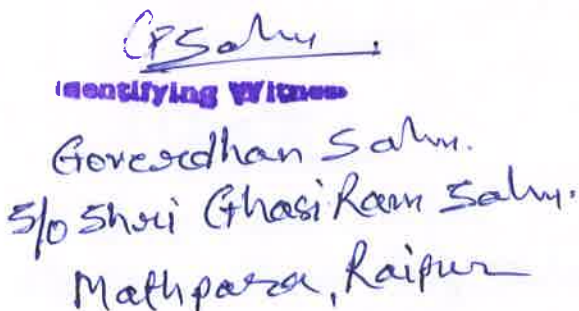 GPSahu.
Identifying Witness
Goverdhan Sahu.
S/o Shri Ghasi Ram Sahu.
Mathpara, Raipur